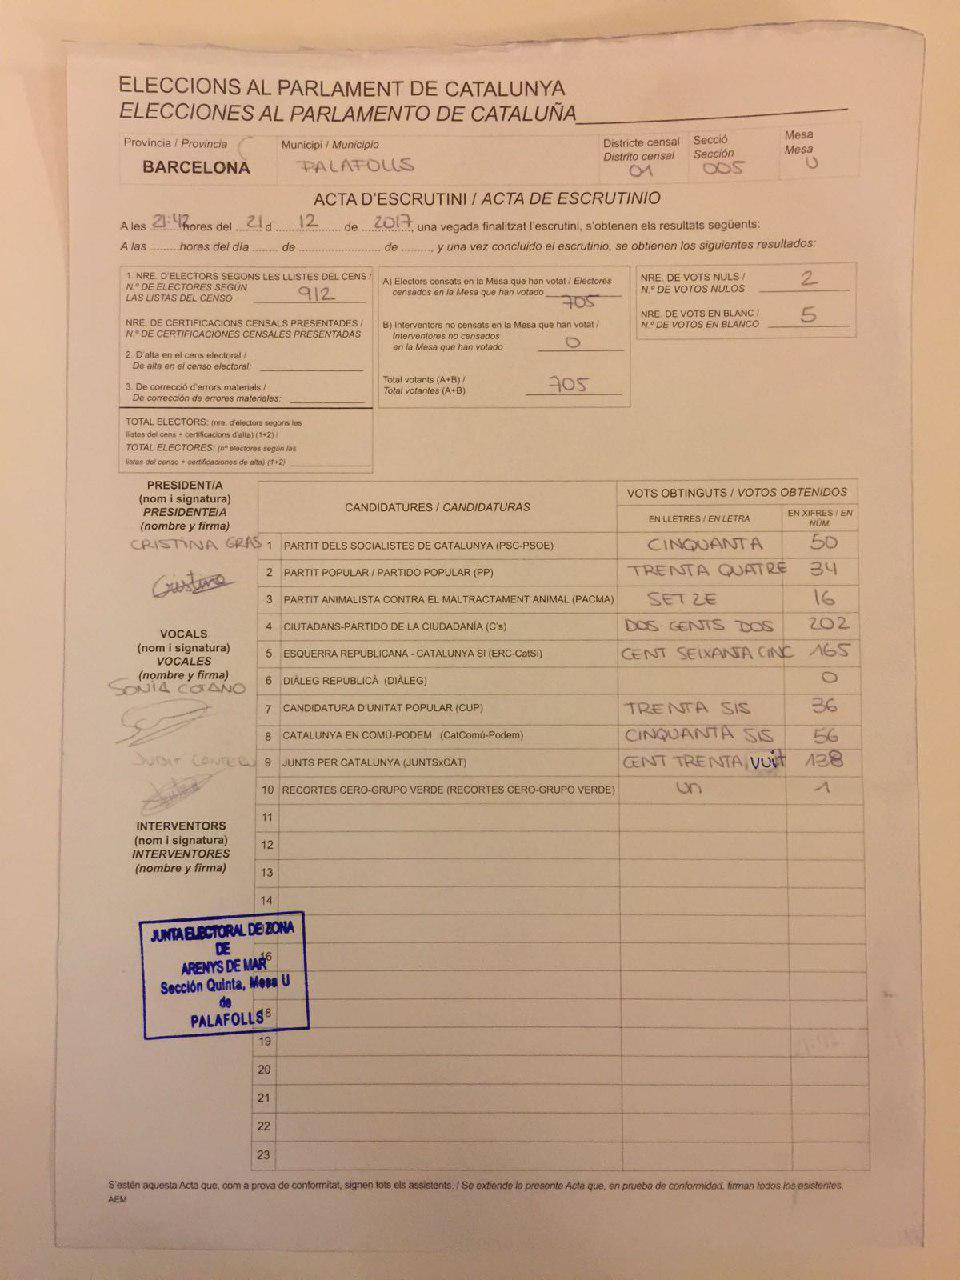 ELECCIONS AL PARLAMENT DE CATALUNYA
ELECCIONES AL PARLAMENTO DE CATALUÑA
Provincia / Provincia
BARCELONA
Municipi / Municipio
PALAFOLLS
Districte censal
Distrito censal
01
Secció
Sección
005
Mesa
Mesa
U
ACTA D'ESCRUTINI / ACTA DE ESCRUTINIO
A les 21:42 hores del 21 d 12 de 2017, una vegada finalitzat l'escrutini, s'obtenen els resultats següents:
A las ........ horas del día ....... de ........................ de ........, y una vez concluido el escrutinio, se obtienen los siguientes resultados:
1. NRE. D'ELECTORS SEGONS LES LLISTES DEL CENS /
N.º DE ELECTORES SEGÚN
LAS LISTAS DEL CENSO 912
NRE. DE CERTIFICACIONS CENSALS PRESENTADES /
N.º DE CERTIFICACIONES CENSALES PRESENTADAS
2. D'alta en el cens electoral /
De alta en el censo electoral:
3. De correcció d'errors materials /
De corrección de errores materiales:
TOTAL ELECTORS: (nre. d'electors segons les
llistes del cens + certificacions d'alta) (1+2) /
TOTAL ELECTORES: (nº electores según las
listas del censo + certificaciones de alta) (1+2)
A) Electors censats en la Mesa que han votat / Electores
censados en la Mesa que han votado 705
B) Interventors no censats en la Mesa que han votat /
Interventores no censados
en la Mesa que han votado 0
Total votants (A+B) /
Total votantes (A+B) 705
NRE. DE VOTS NULS /
N.º DE VOTOS NULOS 2
NRE. DE VOTS EN BLANC /
N.º DE VOTOS EN BLANCO 5
PRESIDENT/A
(nom i signatura)
PRESIDENTE/A
(nombre y firma)
CRISTINA GRAS
Cristina
VOCALS
(nom i signatura)
VOCALES
(nombre y firma)
SONIA
JUDIT
INTERVENTORS
(nom i signatura)
INTERVENTORES
(nombre y firma)
CANDIDATURES / CANDIDATURAS
VOTS OBTINGUTS / VOTOS OBTENIDOS
EN LLETRES / EN LETRA
EN XIFRES / EN NÚM
1 PARTIT DELS SOCIALISTES DE CATALUNYA (PSC-PSOE) CINQUANTA 50
2 PARTIT POPULAR / PARTIDO POPULAR (PP) TRENTA QUATRE 34
3 PARTIT ANIMALISTA CONTRA EL MALTRACTAMENT ANIMAL (PACMA) SETZE 16
4 CIUTADANS-PARTIDO DE LA CIUDADANÍA (C's) DOS CENTS DOS 202
5 ESQUERRA REPUBLICANA - CATALUNYA SÍ (ERC-CatSí) CENT SEIXANTA CINC 165
6 DIÀLEG REPUBLICÀ (DIÀLEG) 0
7 CANDIDATURA D'UNITAT POPULAR (CUP) TRENTA SIS 36
8 CATALUNYA EN COMÚ-PODEM (CatComú-Podem) CINQUANTA SIS 56
9 JUNTS PER CATALUNYA (JUNTSxCAT) CENT TRENTA VUIT 138
10 RECORTES CERO-GRUPO VERDE (RECORTES CERO-GRUPO VERDE) UN 1
11
12
13
14
16
18
19
20
21
22
23
JUNTA ELECTORAL DE ZONA
DE
ARENYS DE MAR
Sección Quinta, Mesa U
de
PALAFOLLS
S'estén aquesta Acta que, com a prova de conformitat, signen tots els assistents. / Se extiende la presente Acta que, en prueba de conformidad, firman todos los asistentes.
AEM